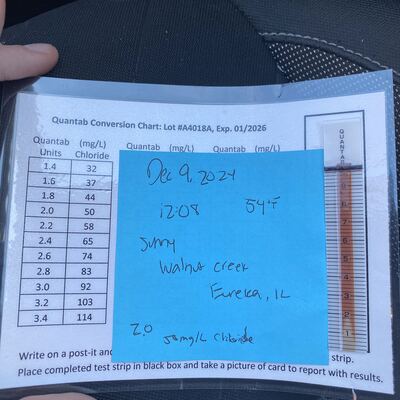 Quantab Conversion Chart: Lot #A4018A, Exp. 01/2026
Quantab (mg/L) Quantab (mg/L) Quantab (mg/L)
Units Chloride
1.4 32
1.6 37
1.8 44
2.0 50
2.2 58
2.4 65
2.6 74
2.8 83
3.0 92
3.2 103
3.4 114
Dec 9, 2024
12:08 54°F
sunny
Walnut Creek
Eureka, IL
2.0 50 mg/L Chloride
QUANTAB
9
8
7
6
5
4
3
2
1
Write on a post-it and strip.
Place completed test strip in black box and take a picture of card to report with results.